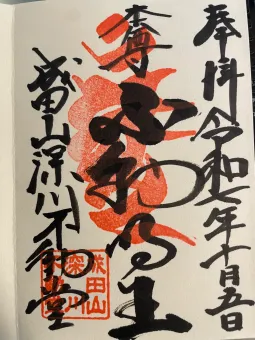 奉拝 令和七年十月五日
本尊 不動明王
成田山深川不動堂
成田山
深川